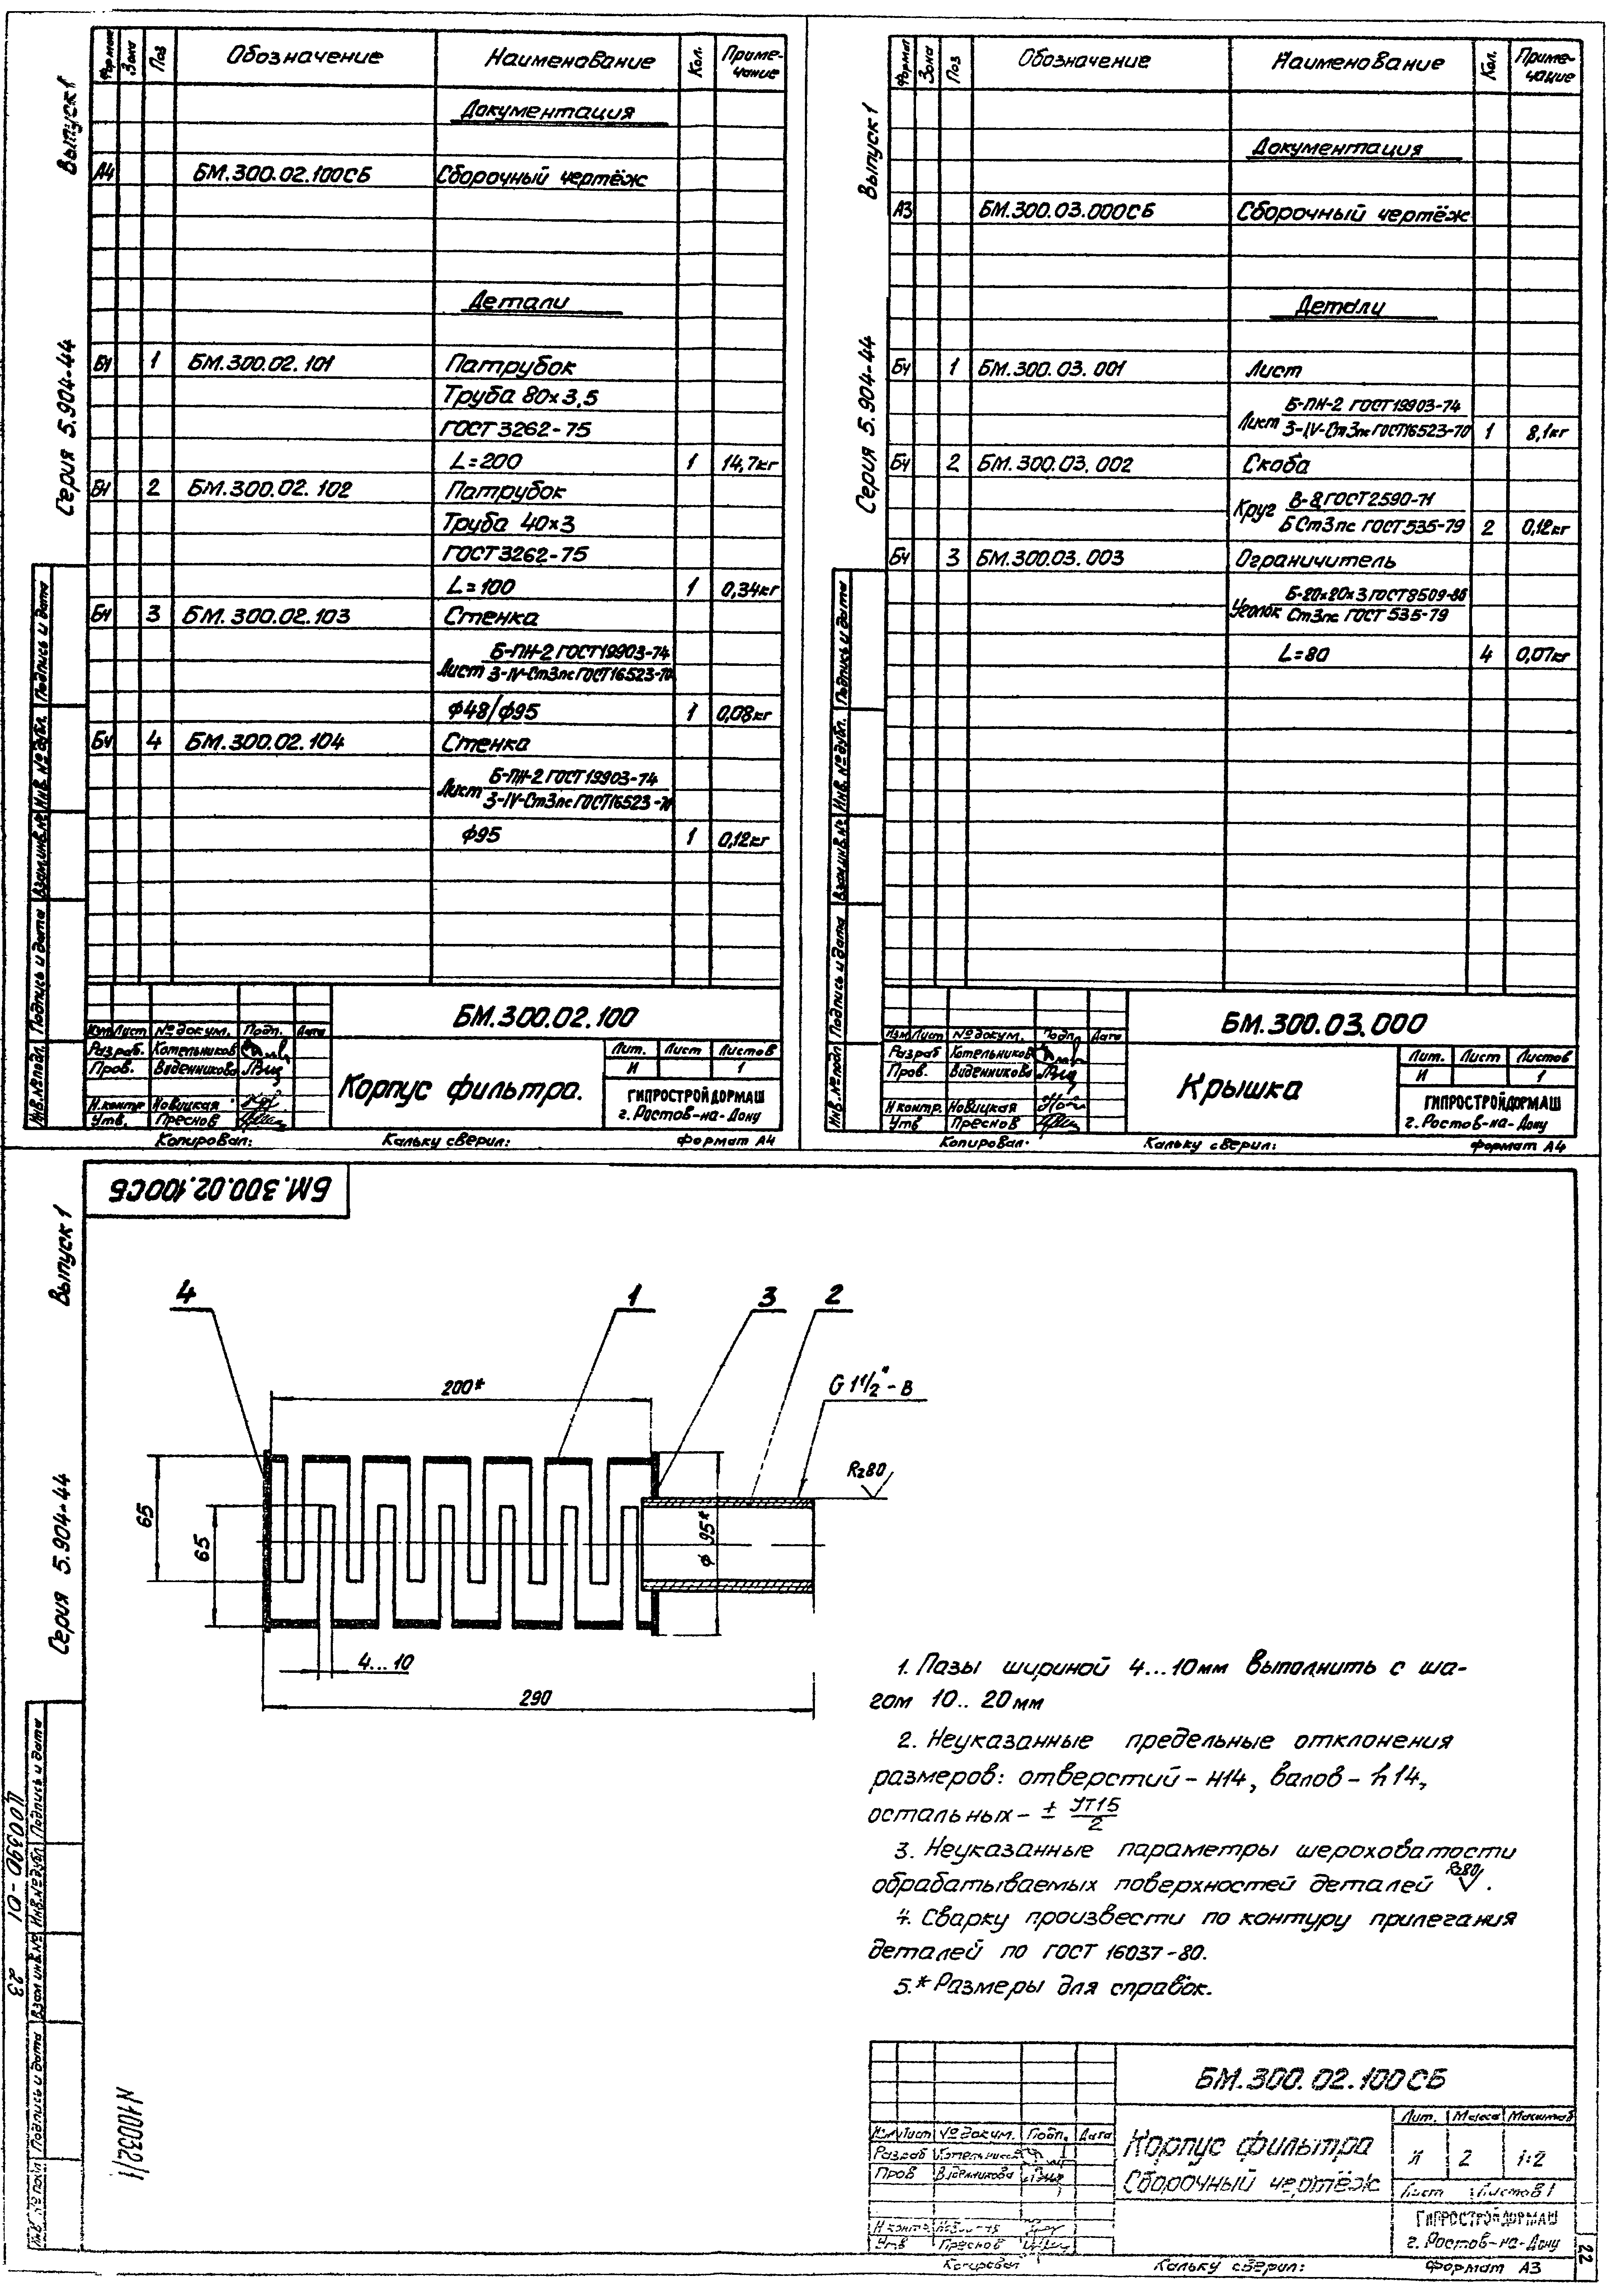 Серия 5.904-44 Выпуск 1
Формат Зона Поз Обозначение Наименование Кол. Примечание
Документация
А4 БМ.300.02.100СБ Сборочный чертёж
Детали
БЧ 1 БМ.300.02.101 Патрубок
Труба 80×3,5
ГОСТ 3262-75
L=200 1 14,7кг
БЧ 2 БМ.300.02.102 Патрубок
Труба 40×3
ГОСТ 3262-75
L=100 1 0,34кг
БЧ 3 БМ.300.02.103 Стенка
Б-ПН-2 ГОСТ 19903-74
Лист 3-IV-Ст3пс ГОСТ 16523-70
ф48/ф95 1 0,08кг
БЧ 4 БМ.300.02.104 Стенка
Б-ПН-2 ГОСТ 19903-74
Лист 3-IV-Ст3пс ГОСТ 16523-70
ф95 1 0,12кг
Инв.№подл. Подпись и дата Взам.инв.№ Инв.№дубл. Подпись и дата
БМ.300.02.100
Изм Лист № докум. Подп. Дата
Разраб. Котельников
Пров. Виденникова
Н.контр Новицкая
Утв. Преснов
Корпус фильтра.
Лит. Лист Листов
И 1
ГИПРОСТРОЙДОРМАШ
г. Ростов-на-Дону
Копировал: Кальку сверил: Формат А4
Серия 5.904-44 Выпуск 1
Формат Зона Поз Обозначение Наименование Кол. Примечание
Документация
А3 БМ.300.03.000СБ Сборочный чертёж
Детали
БЧ 1 БМ.300.03.001 Лист
Б-ПН-2 ГОСТ 19903-74
Лист 3-IV-Ст3пс ГОСТ 16523-70 1 8,1кг
БЧ 2 БМ.300.03.002 Скоба
В-8 ГОСТ 2590-71
Круг БСт3пс ГОСТ 535-79 2 0,12кг
БЧ 3 БМ.300.03.003 Ограничитель
Б-20×20×3 ГОСТ 8509-86
Уголок Ст3пс ГОСТ 535-79
L=80 4 0,07кг
Инв.№подл Подпись и дата Взам.инв.№ Инв.№дубл. Подпись и дата
БМ.300.03.000
Изм Лист № докум. Подп. Дата
Разраб Котельников
Пров. Виденникова
Н.контр. Новицкая
Утв Преснов
Крышка
Лит. Лист Листов
И 1
ГИПРОСТРОЙДОРМАШ
г. Ростов-на-Дону
Копировал. Кальку сверил: Формат А4
Серия 5.904-44 Выпуск 1
БМ.300.02.100СБ
4 1 3 2
200*
G 1 1/2"-В
Rz80
65
65
ф 95*
4...10
290
1. Пазы шириной 4...10мм выполнить с ша-
гом 10..20мм
2. Неуказанные предельные отклонения
размеров: отверстий-Н14, валов-h14,
остальных-± УТ15/2
3. Неуказанные параметры шероховатости
обрабатываемых поверхностей деталей Rz80.
4. Сварку произвести по контуру прилегания
деталей по ГОСТ 16037-80.
5.* Размеры для справок.
Ц00990-01 23
Инв.№подл Подпись и дата Взам инв.№ Инв.№дубл Подпись и дата
N10032/1
БМ.300.02.100СБ
Изм Лист № докум. Подп. Дата
Разраб Котельников
Пров Виденникова
Н контр Новицкая
Утв Преснов
Корпус фильтра
Сборочный чертёж
Лит. Масса Масштаб
И 2 1:2
Лист Листов 1
ГИПРОСТРОЙДОРМАШ
г. Ростов-на-Дону
Копировал Кальку сверил: Формат А3
22